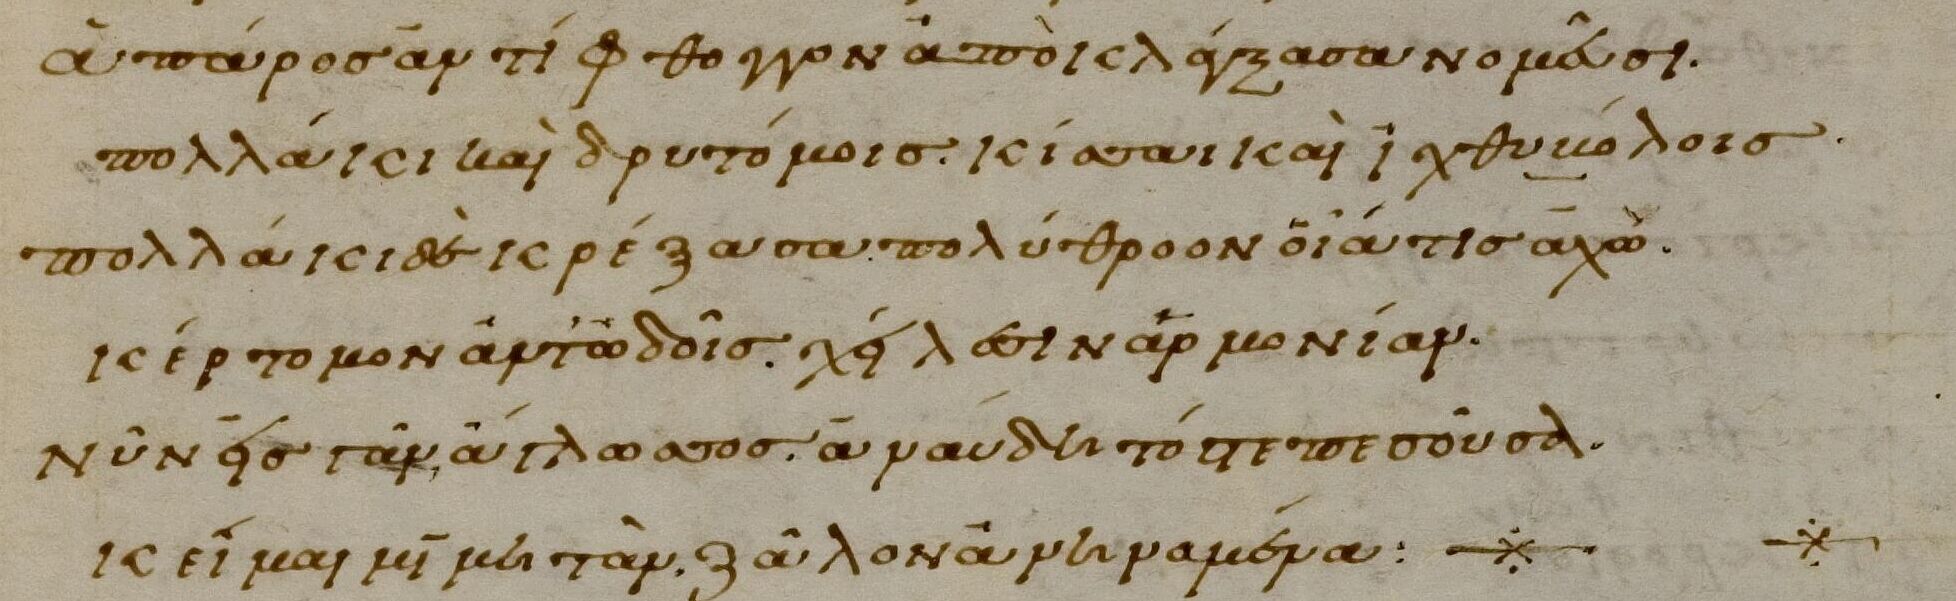 ἁ πάρος ἀντίφθογγον ἀποκλάγξασα νομεῦσι.
πολλάκι καὶ δρυτόμοις. κίσσα καὶ ἰχθυβόλοις.
πολλάκι δὲ κρέξασα πολύθροον οἷά τις ἀχὼ.
κέρτομον ἀντῳδοῖς. χείλεσιν ἁρμονίαν.
νῦν εἰς γᾶν ἄγλωσσος. ἀναύδητός τε πεσοῦσα.
κεῖμαι μιμητὰν. ζᾶλον ἀνηναμένα: